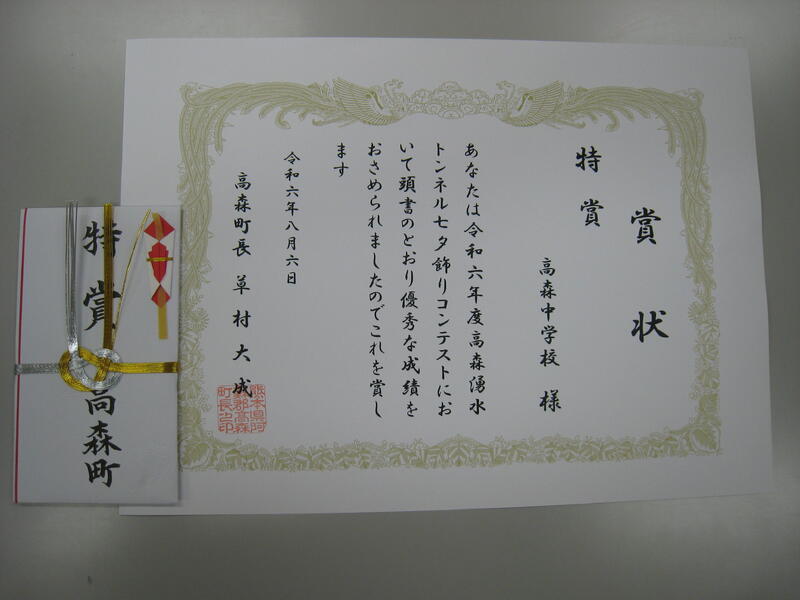 賞状
特賞
高森中学校 様
あなたは令和六年度高森湧水
トンネル七夕飾りコンテストにお
いて頭書のとおり優秀な成績を
おさめられましたのでこれを賞し
ます
令和六年八月六日
高森町長 草村大成
熊本県阿
蘇郡高森
町長之印
特賞
高森町